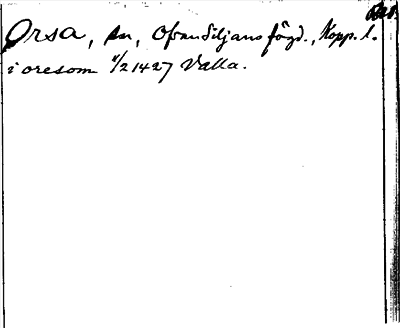 Orsa, sn, Ofvan Siljans fögd., Kopp. l.
i oresom 8/2 1427 Valla.